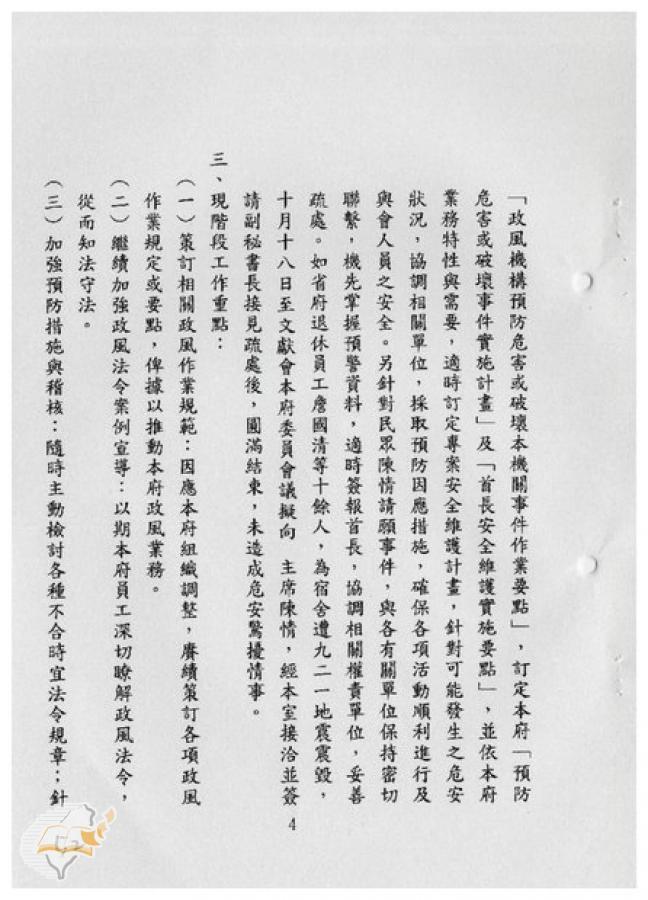 「政風機構預防危害或破壞本機關事件作業要點」，訂定本府「預防
危害或破壞事件實施計畫」及「首長安全維護實施要點」，並依本府
業務特性與需要，適時訂定專案安全維護計畫，針對可能發生之危安
狀況，協調相關單位，採取預防因應措施，確保各項活動順利進行及
與會人員之安全。另針對民眾陳情請願事件，與各有關單位保持密切
聯繫，機先掌握預警資料，適時簽報首長，協調相關權責單位，妥善
疏處。如省府退休員工詹國清等十餘人，為宿舍遭九二一地震震毀，
十月十八日至文獻會本府委員會議擬向　主席陳情，經本室接洽並簽
請副秘書長接見疏處後，圓滿結束，未造成危安驚擾情事。
三、現階段工作重點：
（一）策訂相關政風作業規範：因應本府組織調整，賡續策訂各項政風
作業規定或要點，俾據以推動本府政風業務。
（二）繼續加強政風法令案例宣導：以期本府員工深切瞭解政風法令，
從而知法守法。
（三）加強預防措施與稽核：隨時主動檢討各種不合時宜法令規章；針
4